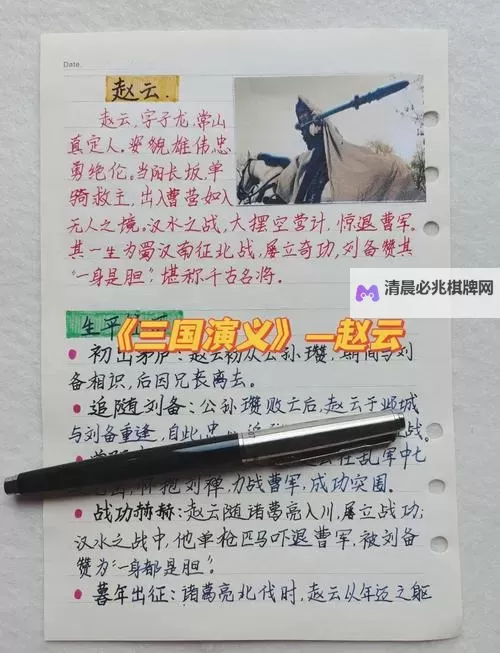 Date.
赵云.
赵云,字子龙,常山
真定人。姿貌雄伟,忠
勇绝伦。当阳长坂,单
骑救主,出入曹营如入
无人之境。汉水之战,大摆空营计,惊退曹军。
其一生为蜀汉南征北战,屡立奇功,刘备赞其
“一身是胆”,堪称千古名将。
清晨必兆棋牌网
生平
《三国演义》—赵云
初出茅庐:赵云初从公孙瓒,期间与刘
备相识,后因兄长离去。
追随刘备:公孙瓒败亡后,赵云于邺城
与刘备重逢,自此忠心追战。
在乱军中七
怀抱刘禅,力战曹军,成功突围。
战功赫赫:赵云随诸葛亮入川,屡立战功;
汉水之战中,他单枪匹马吓退曹军,被刘备
赞为“一身都是胆”。
暮年出征:诸葛亮北伐时,赵云以年迈之躯